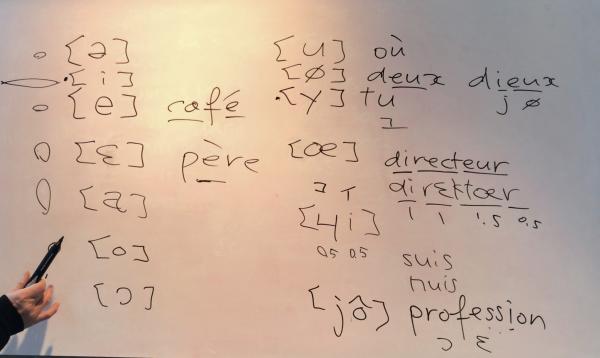 [ə]
·[i]
[e] café
[ɛ] père
[a]
[o]
[ɔ]
[u] où
[ø] deux dieux
j ø
·[y] tu
[œ] directeur
dirɛktœr
1 1 1.5 0.5
[ɥi]
0.5 0.5
suis
nuis
[jõ] profession
ɔ ɛ